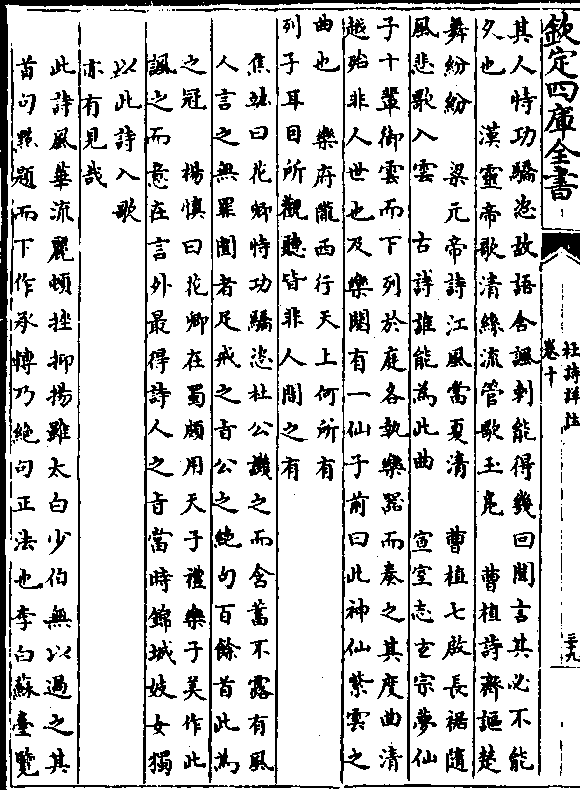 欽定四庫全書
杜詩詳註
卷十
三十九
其人恃功驕恣故語含諷刺能得幾回聞言其必不能
久也 漢靈帝歌清絲流管歌玉鳧 曹植詩齊謳楚
舞紛紛 梁元帝詩江風當夏清 曹植七啟長裾隨
風悲歌入雲 古詩誰能為此曲 宣室志玄宗夢仙
子十輩御雲而下列於庭各執樂器而奏之其度曲清
越殆非人世也及樂闋有一仙子前曰此神仙紫雲之
曲也 樂府隴西行天上何所有
列子耳目所觀聽皆非人間之有
焦竑曰花卿恃功驕恣杜公譏之而含蓄不露有風
人言之無罪聞者足戒之旨公之絶句百餘首此為
之冠 楊慎曰花卿在蜀頗用天子禮樂子美作此
諷之而意在言外最得詩人之旨當時錦城妓女獨
以此詩入歌
亦有見哉
此詩風華流麗頓挫抑揚雖太白少伯無以過之其
首句點題而下作承轉乃絶句正法也李白蘇臺覽